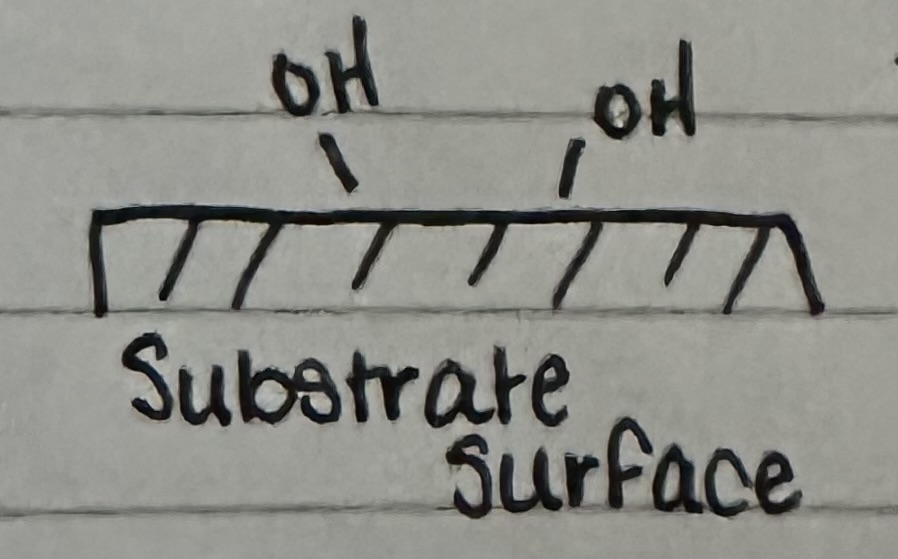 OH
OH
Substrate
Surface